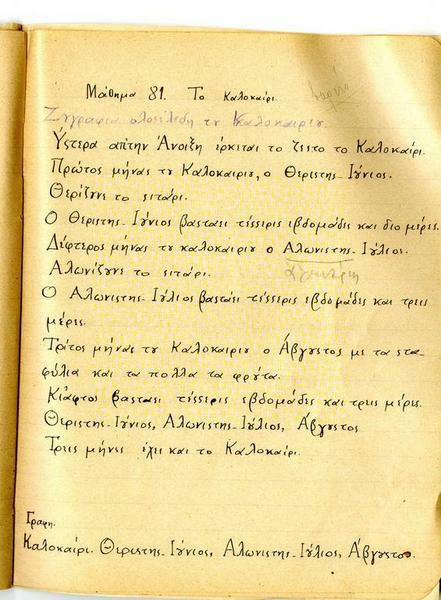 Μάθημα 81. Το Καλοκαίρι.
Ζυγραφια ολοσέλεδη τυ Καλοκαιριυ.
Ύστερα απίτην Άνοιξη έρκεται το ζεστο το Καλοκαίρι.
Πρώτος μήνας τυ Καλοκαιριυ, ο Θεριστης_Ιύνιος.
Θερίζυνε το σιτάρι.
Ο Θεριστης_Ιύνιος βασταει τέσσερις εβδομάδες και διο μέρες.
Δέφτερος μήνας τυ καλοκαιριυ ο Αλωνιστης_Ιύλιος.
Αλωνίζυνε το σιτάρι.
Ο Αλωνιστης_Ιύλιος βασταει τέσσερις εβδομάδες και τρεις
μέρες.
Τρίτος μήνας τυ Καλοκαιριυ ο Άβγυστος με τα στα-
φύλια και τα πολλα τα φρύτα.
Κιάφτος βασταει τέσσερις εβδομάδες και τρεις μέρες.
Θεριστης_Ιύνιος, Αλωνιστης_Ιύλιος, Άβγυστος
Τρεις μήνες έχει και το Καλοκαίρι.
Γραφη.
Καλοκαίρι. Θεριστης_Ιύνιος, Αλωνιστης_Ιύλιος, Άβγυστος.